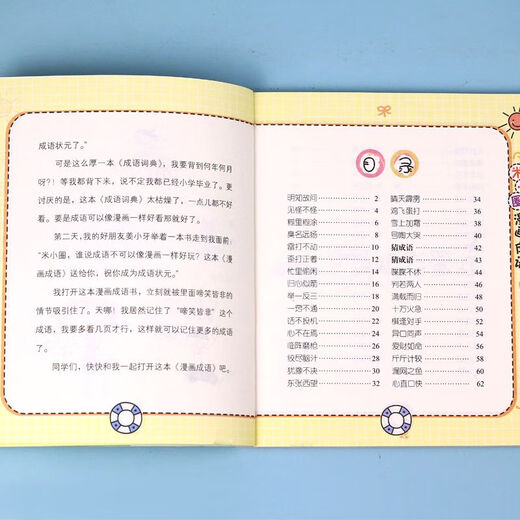 成语状元了。”
可是这么厚一本《成语词典》，我要背到何年何月
呀？！等我都背下来，说不定我都已经小学毕业了。更
讨厌的是，这本《成语词典》太枯燥了，一点儿都不好
看。要是成语可以像漫画一样好看那就好了。
第二天，我的好朋友姜小牙举着一本书走到我面前：
“米小圈，谁说成语不可以像漫画一样好玩？这本《漫
画成语》送给你，祝你成为成语状元。”
我打开这本漫画成语书，立刻就被里面啼笑皆非的
情节吸引住了。天哪！我居然记住了“啼笑皆非”这个
成语，我要多看几页才行，这样就可以记住更多的成语
了。
同学们，快快和我一起打开这本《漫画成语》吧。
目录
明知故问 2
见怪不怪 4
糊里糊涂 6
臭名远扬 8
雷打不动 10
歪打正着 12
忙里偷闲 14
归心似箭 16
举一反三 18
一窍不通 20
话不投机 22
心不在焉 24
临阵磨枪 26
绞尽脑汁 28
犹豫不决 30
东张西望 32
晴天霹雳 34
鸡飞蛋打 36
雪上加霜 38
号啕大哭 40
猜成语 42
猜成语 43
喋喋不休 44
判若两人 46
满载而归 48
十万火急 50
棋逢对手 52
异口同声 54
爱财如命 56
斤斤计较 58
漏网之鱼 60
心直口快 62
米
圈
漫画成